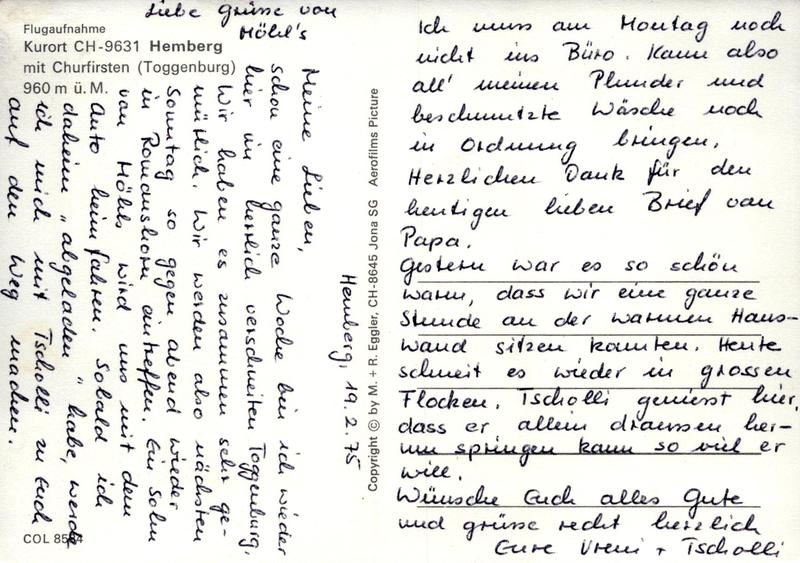 Flugaufnahme
Kurort CH-9631 Hemberg
mit Churfirsten (Toggenburg)
960 m ü. M.
Hemberg, 19. 2. 75
Meine Lieben,
schon eine ganze Woche bin ich wieder
hier im herrlich verschneiten Toggenburg.
Wir haben es zusammen sehr ge-
mütlich. Wir werden also nächsten
Sonntag so gegen abend wieder
in Romanshorn eintreffen. Ein Sohn
von Möhls wird uns mit dem
Auto heim fahren. Sobald ich
daheim "abgeladen" habe, werde
ich mich mit Tscholli zu Euch
auf den Weg machen.
Ich muss am Montag noch
nicht ins Büro. Kann also
all' meinen Plunder und
beschmutzte Wäsche noch
in Ordnung bringen.
Herzlichen Dank für den
heutigen lieben Brief von
Papa.
Gestern war es so schön
warm, dass wir eine ganze
Stunde an der warmen Haus-
wand sitzen konnten. Heute
schneit es wieder in grossen
Flocken. Tscholli geniesst hier,
dass er allein draussen her-
um springen kann so viel er
will.
Wünsche Euch alles Gute
und grüsse recht herzlich
Eure Vreni + Tscholli
Liebe Grüsse von
Möhl's
Copyright © by M. + R. Eggler, CH-8645 Jona SG Aerofilms Picture
COL